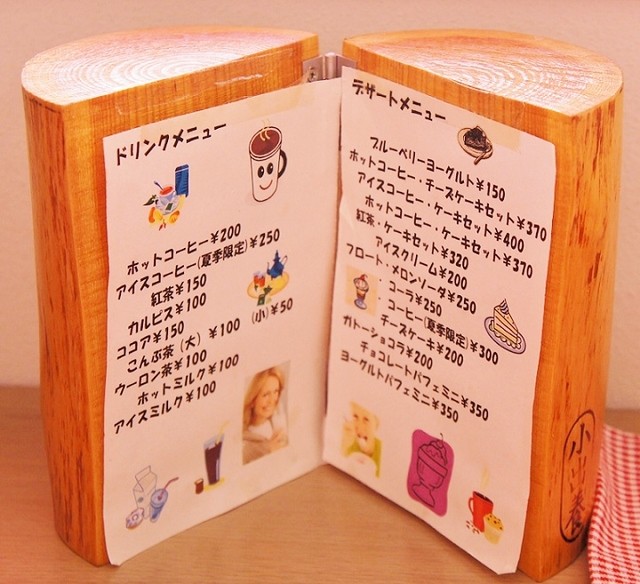 ドリンクメニュー
ホットコーヒー¥200
アイスコーヒー(夏季限定)¥250
紅茶¥150
カルピス¥100
ココア¥150
こんぶ茶(大)¥100 (小)¥50
ウーロン茶¥100
ホットミルク¥100
アイスミルク¥100
デザートメニュー
ブルーベリーヨーグルト¥150
ホットコーヒー・チーズケーキセット¥370
アイスコーヒー・ケーキセット¥400
ホットコーヒー・ケーキセット¥370
紅茶・ケーキセット¥320
アイスクリーム¥200
フロート・メロンソーダ¥250
・コーラ¥250
・コーヒー(夏季限定)¥300
チーズケーキ¥200
ガトーショコラ¥200
チョコレートパフェミニ¥350
ヨーグルトパフェミニ¥350